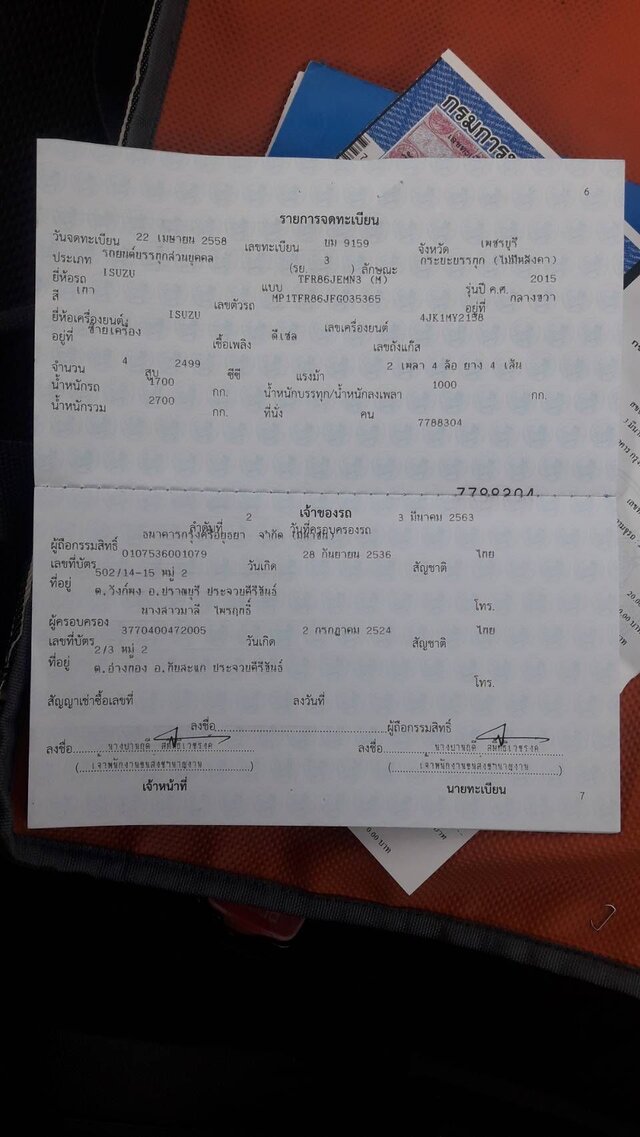 กรมการ
6
รายการจดทะเบียน
วันจดทะเบียน 22 เมษายน 2558 เลขทะเบียน ยม 9159 จังหวัด เพชรบุรี
ประเภท รถยนต์บรรทุกส่วนบุคคล (รย 3 ) ลักษณะ กระบะบรรทุก (ไม่มีหลังคา)
ยี่ห้อรถ ISUZU แบบ TFR86JEMN3 (M) รุ่นปี ค.ศ. 2015
สี เทา เลขตัวรถ MP1TFR86JFG035365 อยู่ที่ กลางขวา
ยี่ห้อเครื่องยนต์ ISUZU เลขเครื่องยนต์ 4JK1MY2158
อยู่ที่ ซ้ายเครื่อง เชื้อเพลิง ดีเซล เลขถังแก๊ส
จำนวน 4 สูบ 2499 ซีซี แรงม้า 2 เพลา 4 ล้อ ยาง 4 เส้น
น้ำหนักรถ 1700 กก. น้ำหนักบรรทุก/น้ำหนักลงเพลา 1000 กก.
น้ำหนักรวม 2700 กก. ที่นั่ง คน
7788304
7788304
เจ้าของรถ
ลำดับที่ 2 วันที่ครอบครองรถ 3 มีนาคม 2563
ผู้ถือกรรมสิทธิ์ ธนาคารกรุงศรีอยุธยา จำกัด (มหาชน)
เลขที่บัตร 0107536001079 วันเกิด 28 กันยายน 2536 สัญชาติ ไทย
ที่อยู่ 502/14-15 หมู่ 2
ต.วังก์พง อ.ปราณบุรี ประจวบคีรีขันธ์
โทร.
ผู้ครอบครอง นางสาวมาลี ไพรฤทธิ์
เลขที่บัตร 3770400472005 วันเกิด 2 กรกฎาคม 2524 สัญชาติ ไทย
ที่อยู่ 2/3 หมู่ 2
ต.อ่างทอง อ.ทับสะแก ประจวบคีรีขันธ์
โทร.
สัญญาเช่าซื้อเลขที่ ลงวันที่
ลงชื่อ ผู้ถือกรรมสิทธิ์
ลงชื่อ ลงชื่อ
(เจ้าพนักงานขนส่งชำนาญงาน) (เจ้าพนักงานขนส่งชำนาญงาน)
เจ้าหน้าที่ นายทะเบียน
7